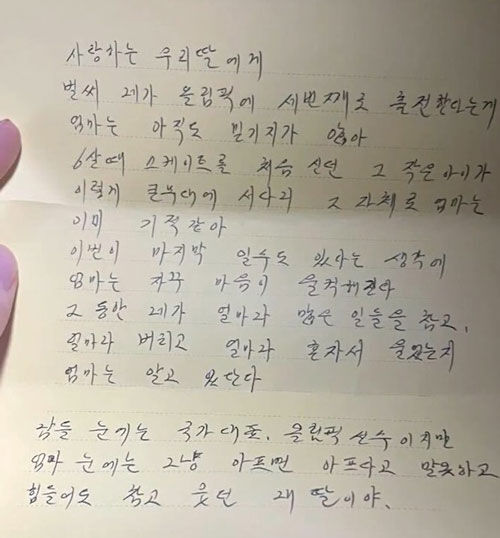 사랑하는 우리딸에게
벌써 레가 올림픽에 세번째로 출전한다는게
엄마는 아직도 믿기지가 않아
6살때 스케이트를 처음 신던 그 작은아이가
이렇게 큰무대에 서다니 그 자체로 엄마는
이미 기적같아
이번이 마지막 일수도 있다는 생각에
엄마는 자꾸 마음이 울컥해진다
그 동안 레가 얼마나 많은 일들을 참고,
얼마나 버티고 얼마나 혼자서 울었는지
엄마는 알고 있단다
남들 눈에는 국가대표, 올림픽 선수이지만
엄마 눈에는 그냥 아프면 아프다고 말못하고
힘들어도 참고 웃던 내 딸이야.